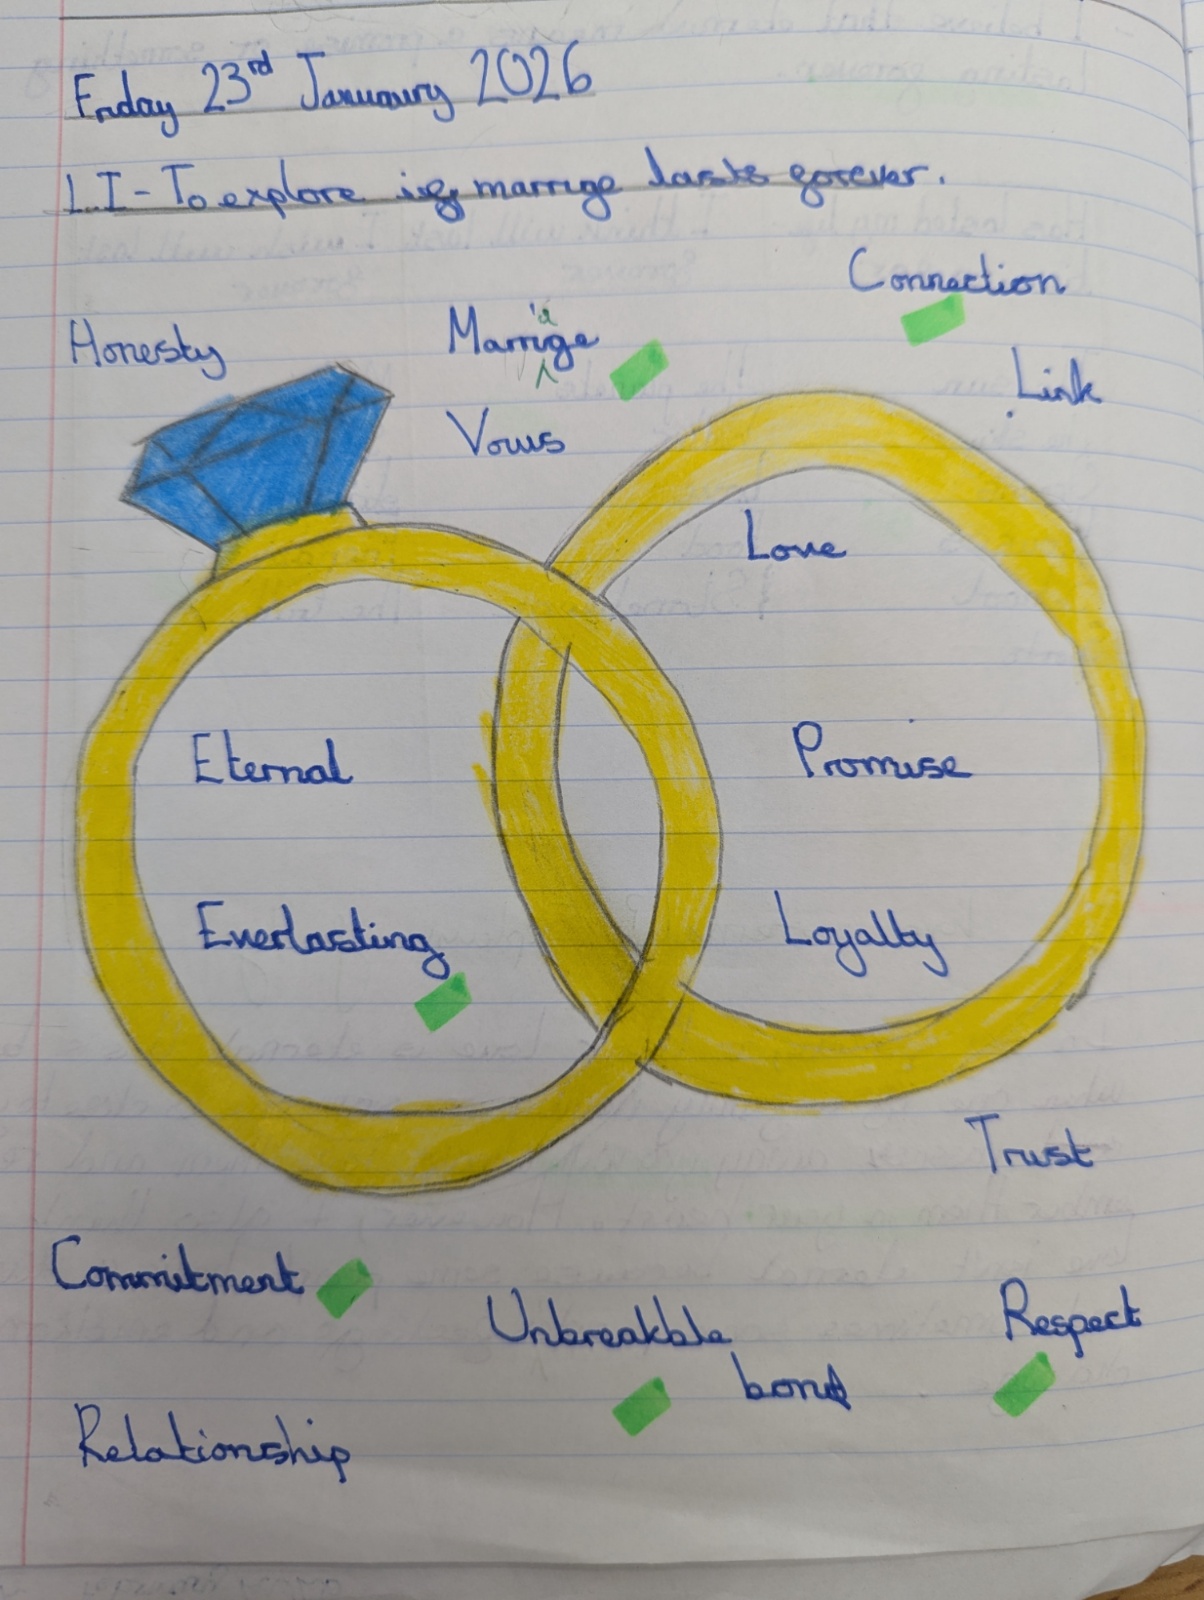 Friday 23rd Janauary 2026
L.I - To explore if marrige lasts forever.
Connection
Honesty
Marrige
a
Link
Vows
Love
Eternal
Promise
Everlasting
Loyalty
Trust
Commitment
Unbreakble
bond
Respect
Relationship